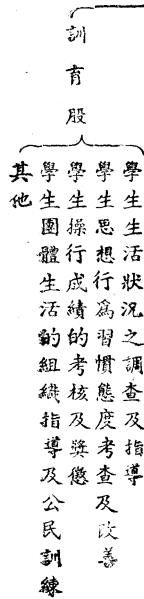 訓育股
學生生活狀況之調查及指導
學生思想行為習慣態度考查及改善
學生操行成績的考核及獎懲
學生團體生活的組織指導及公民訓練
其他